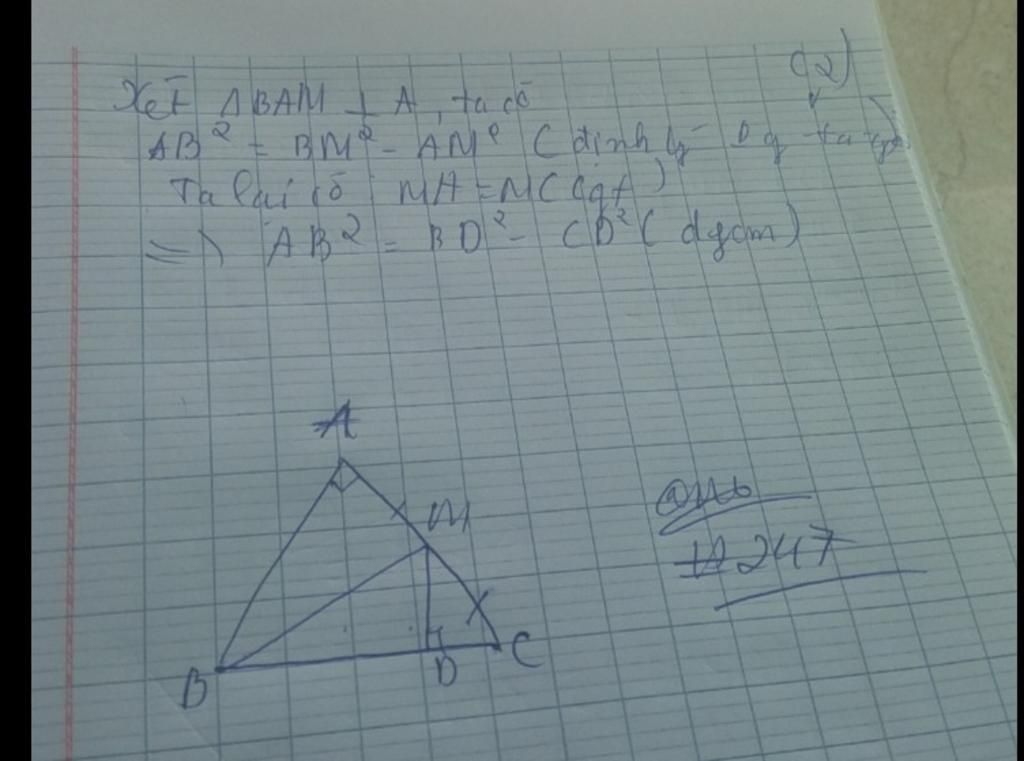 (2)
Xét ΔBAM ⊥ A, ta có
AB² = BM² - AM² (định lý Py ta go)
Ta lại có MA = MC (gt)
=> AB² = BD² - CD² (đpcm)
A
M
B
D
C
247